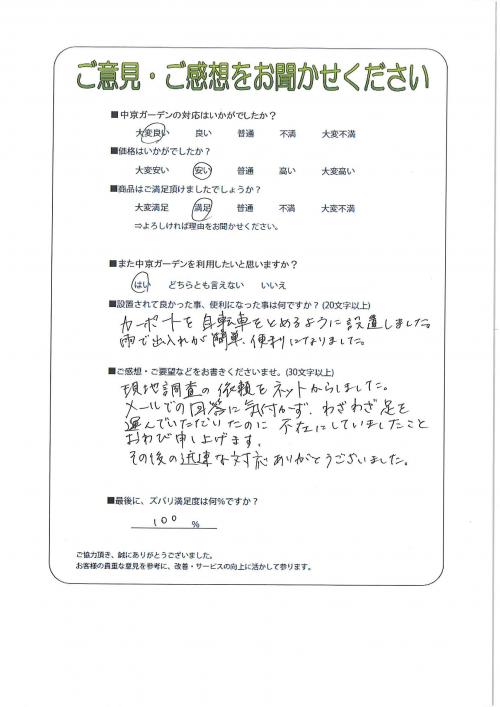 ご意見・ご感想をお聞かせください
■中京ガーデンの対応はいかがでしたか？
大変良い 良い 普通 不満 大変不満
■価格はいかがでしたか？
大変安い 安い 普通 高い 大変高い
■商品はご満足頂けましたでしょうか？
大変満足 満足 普通 不満 大変不満
⇒よろしければ理由をお聞かせください。
■また中京ガーデンを利用したいと思いますか？
はい どちらとも言えない いいえ
■設置されて良かった事、便利になった事は何ですか？(20文字以上)
カーポートを自転車をとめるように設置しました。
雨で出入れが簡単、便利になりました。
■ご感想・ご要望などをお書きくださいませ。(30文字以上)
現地調査の依頼をネットからしました。
メールでの回答に気付かず、わざわざ足を
運んでいただいたのに不在にしていましたこと
おわび申し上げます。
その後の迅速な対応ありがとうございました。
■最後に、ズバリ満足度は何%ですか？
100 %
ご協力頂き、誠にありがとうございました。
お客様の貴重な意見を参考に、改善・サービスの向上に活かして参ります。